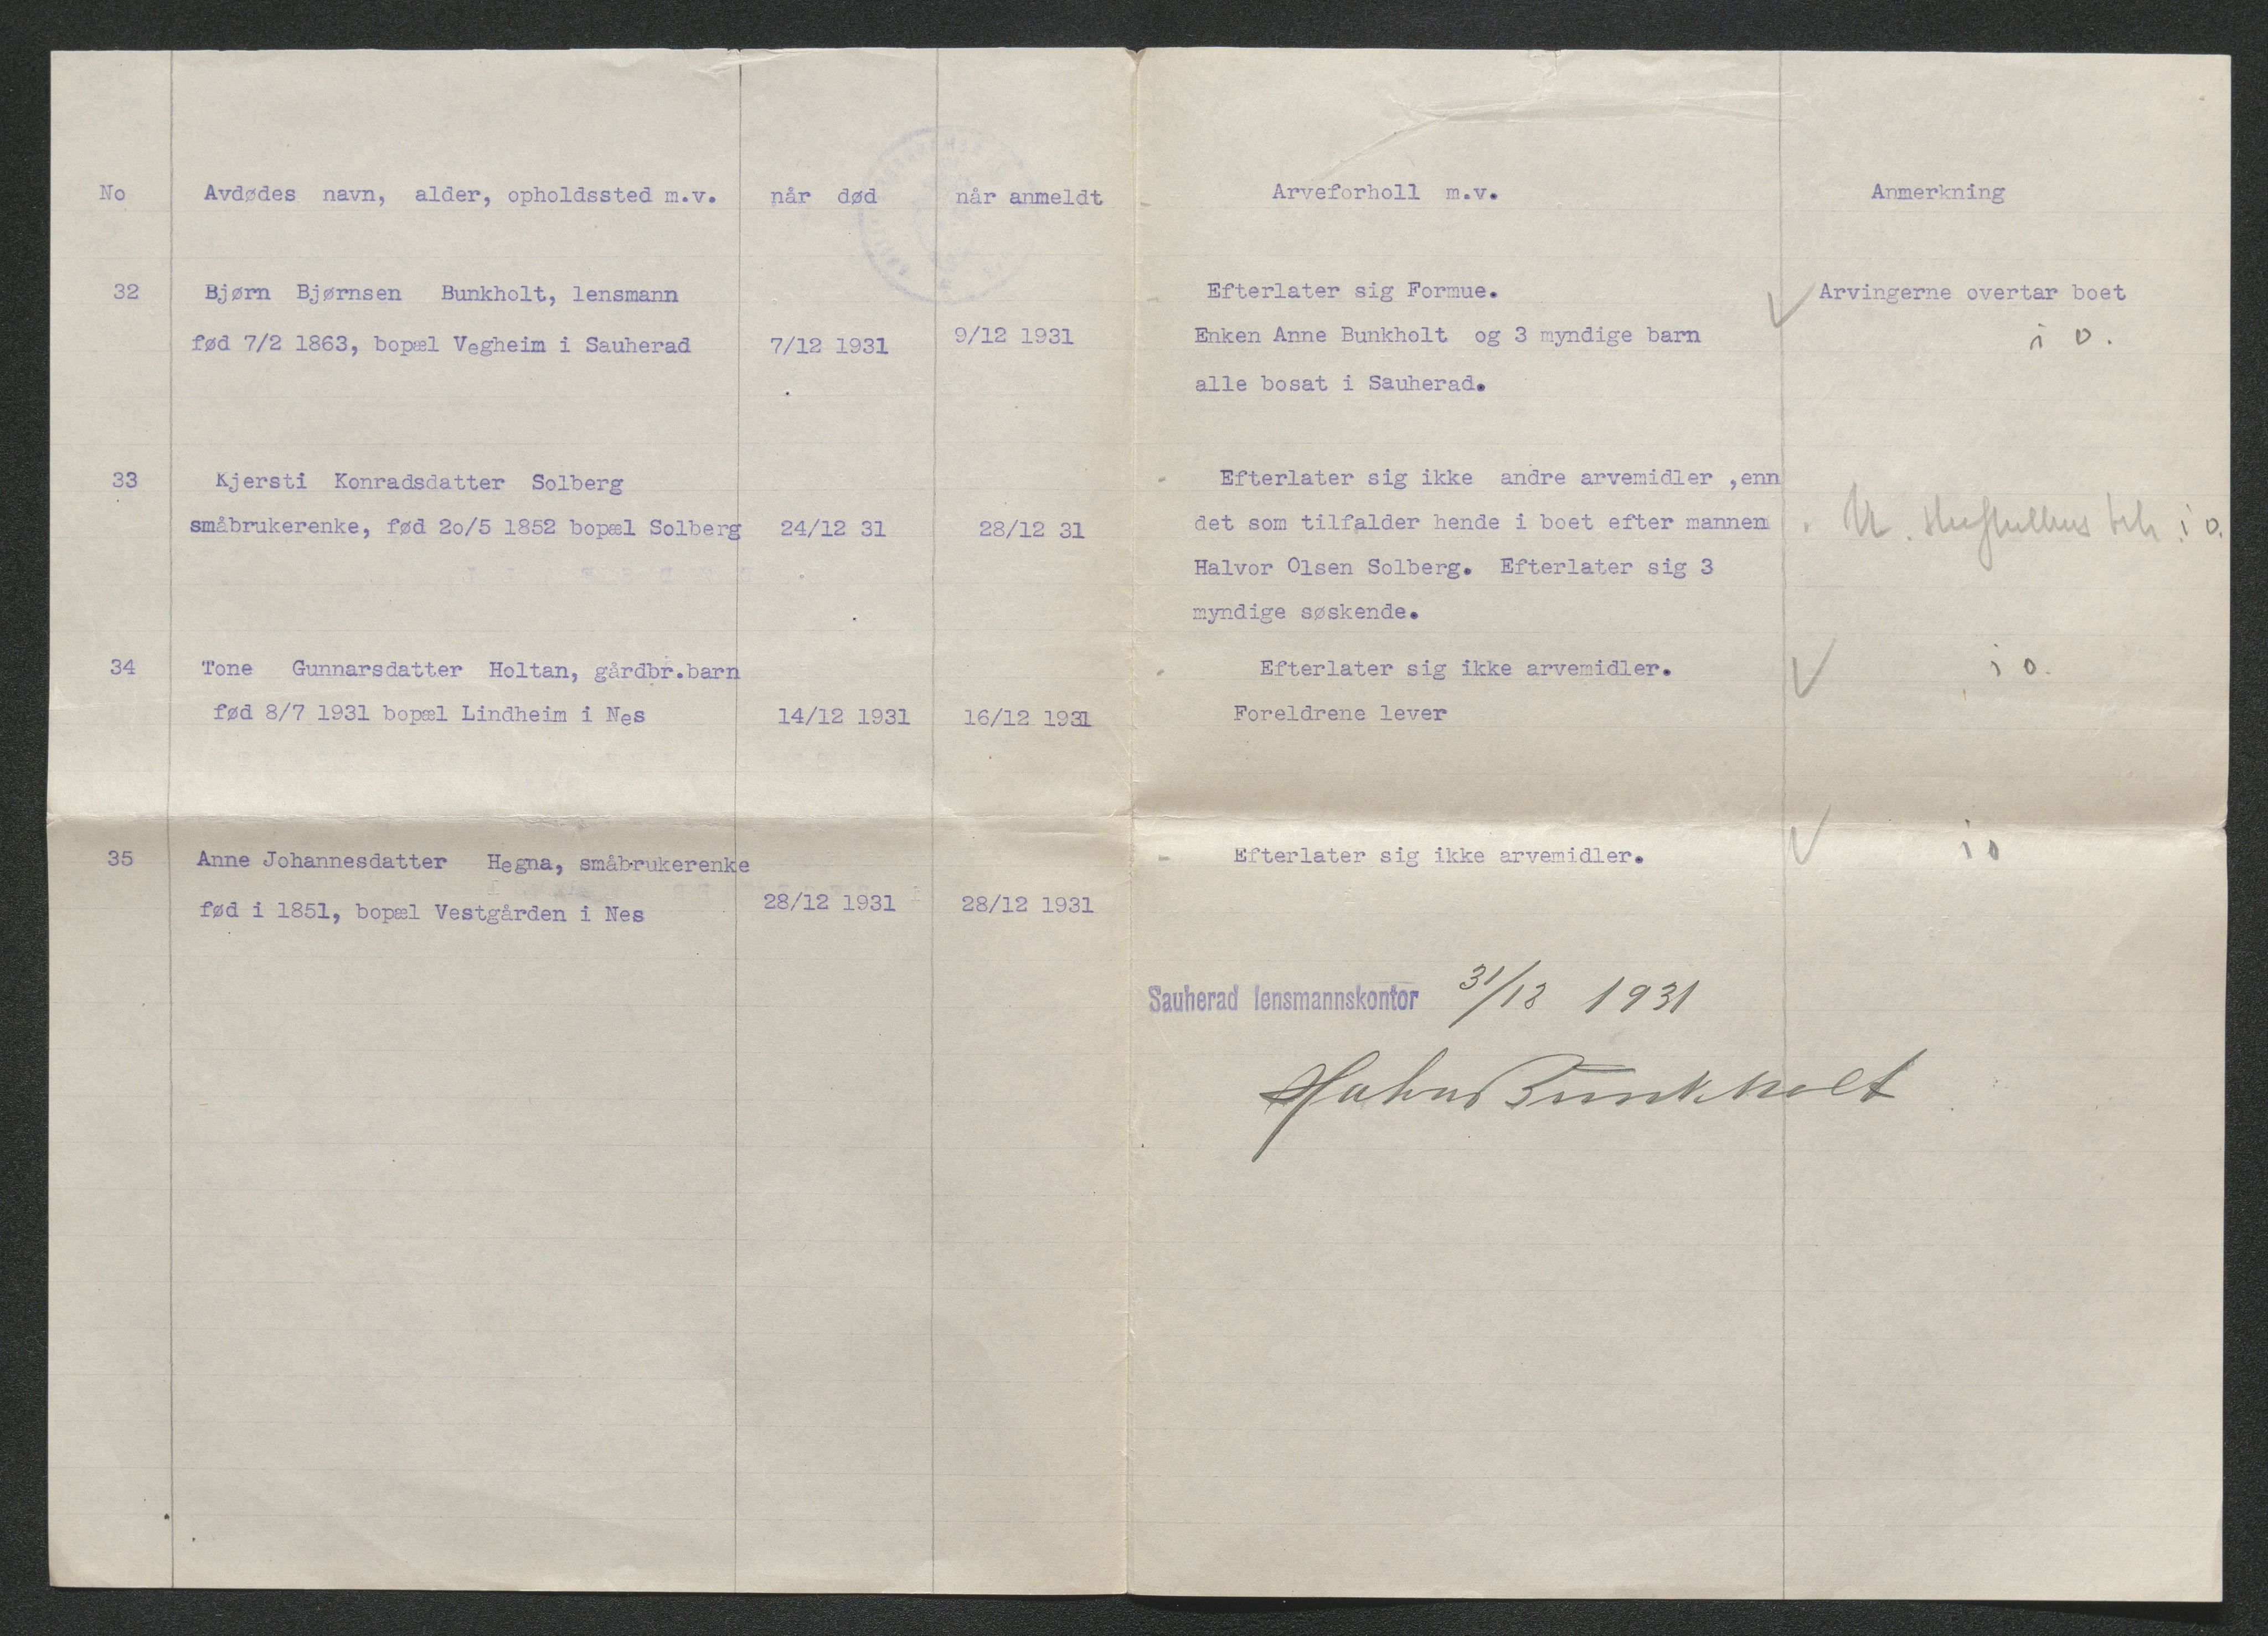 No Avdødes navn, alder, opholdssted m.v. når død når anmeldt Arveforholl m.v. Anmerkning
32 Bjørn Bjørnsen Bunkholt, lensmann Efterlater sig Formue. Arvingerne overtar boet
født 7/2 1863, bopæl Vegheim i Sauherad 7/12 1931 9/12 1931 Enken Anne Bunkholt og 3 myndige barn i o.
alle bosat i Sauherad.
33 Kjersti Konradsdatter Solberg Efterlater sig ikke andre arvemidler ,enn
småbrukerenke, fød 2o/5 1852 bopæl Solberg 24/12 31 28/12 31 det som tilfalder hende i boet efter mannen i o.
Halvor Olsen Solberg. Efterlater sig 3
myndige søskende.
34 Tone Gunnarsdatter Holtan, gårdbr.barn Efterlater sig ikke arvemidler. i o.
fød 8/7 1931 bopæl Lindheim i Nes 14/12 1931 16/12 1931 Foreldrene lever
35 Anne Johannesdatter Hegna, småbrukerenke Efterlater sig ikke arvemidler. i o
fød i 1851, bopæl Vestgården i Nes 28/12 1931 28/12 1931
Sauherad lensmannskontor 31/12 1931
Bunkholt